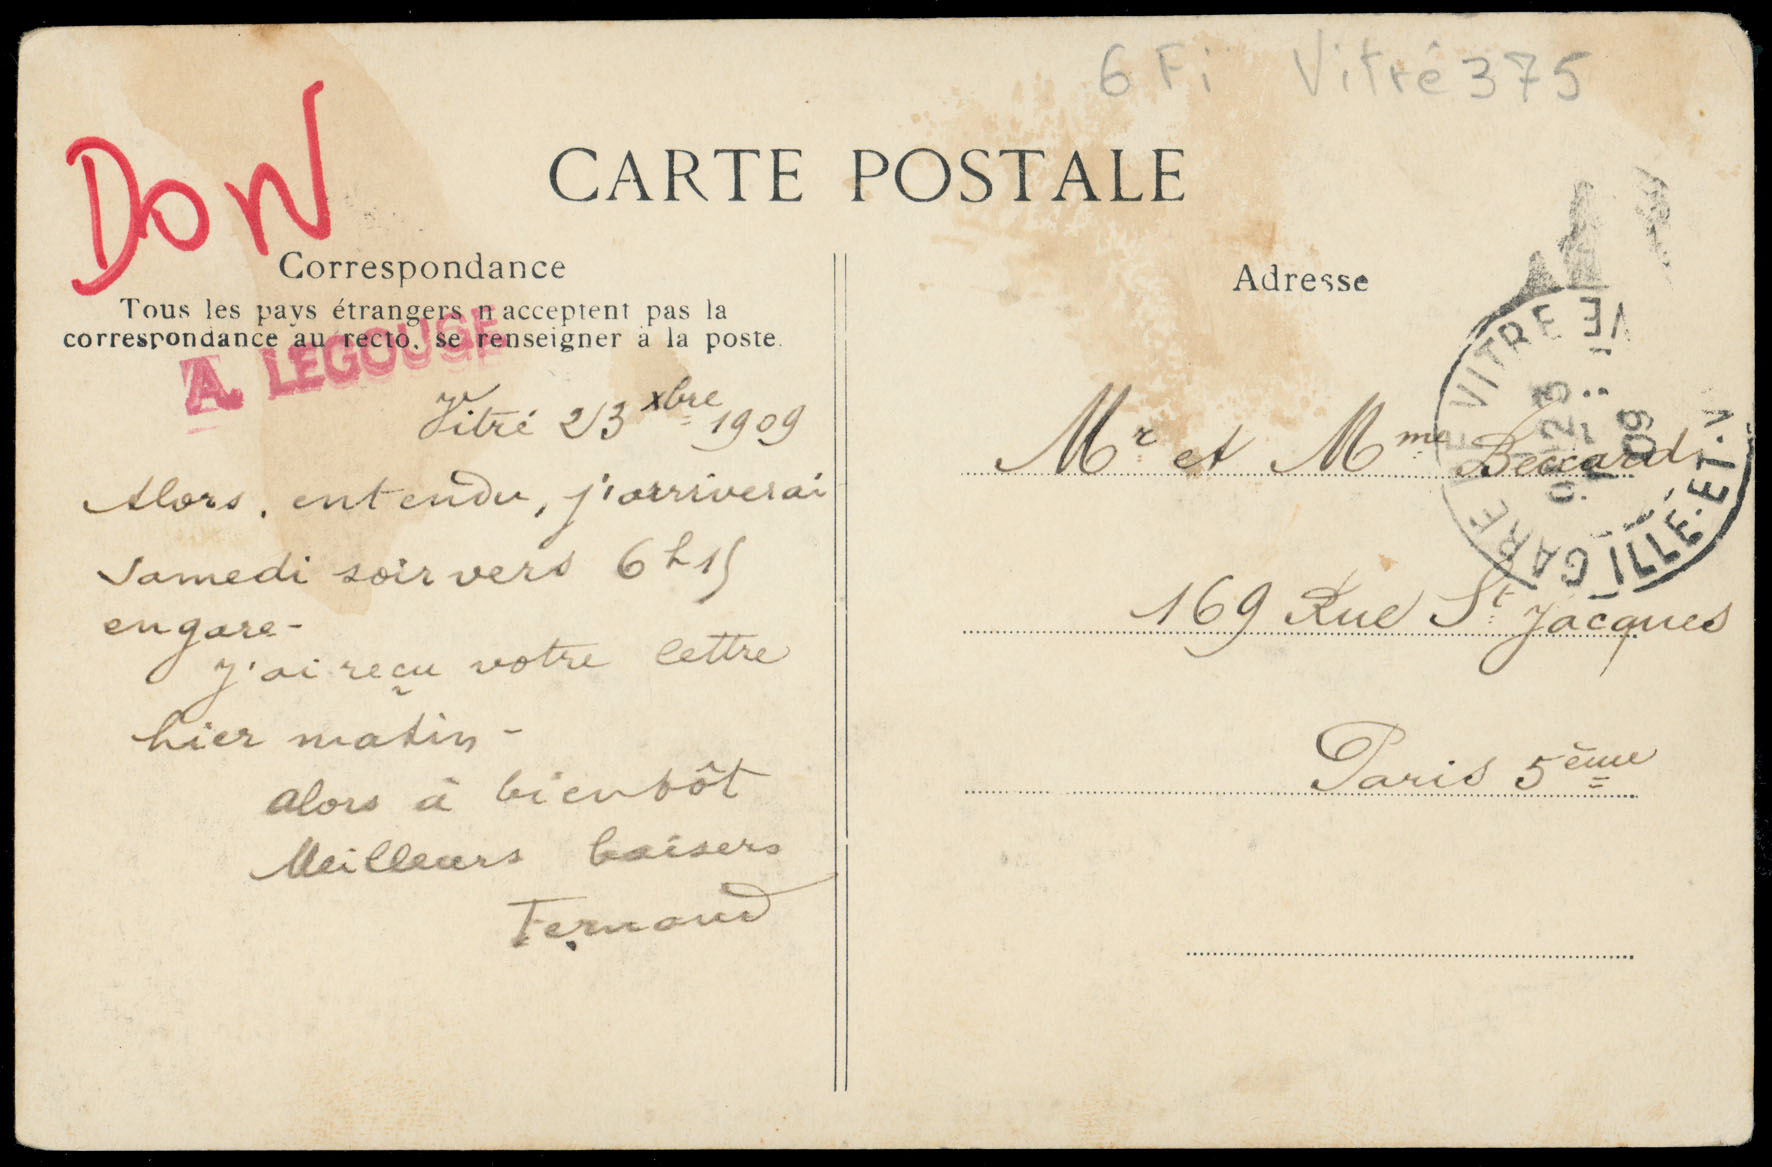 6 Fi Vitré 375
DON
CARTE POSTALE
Correspondance
Tous les pays étrangers n'acceptent pas la
correspondance au recto, se renseigner à la poste.
A. LEGOUGE
Vitré 23 xbre 1909
Alors, entendu, j'arriverai
Samedi soir vers 6h15
en gare -
J'ai reçu votre lettre
hier matin -
alors à bientôt
Meilleurs baisers
Fernand
Adresse
Mr et Mme Beccard
169 Rue St Jacques
Paris 5ème
GARE DE VITRE
ILLE-ET-V
23
09